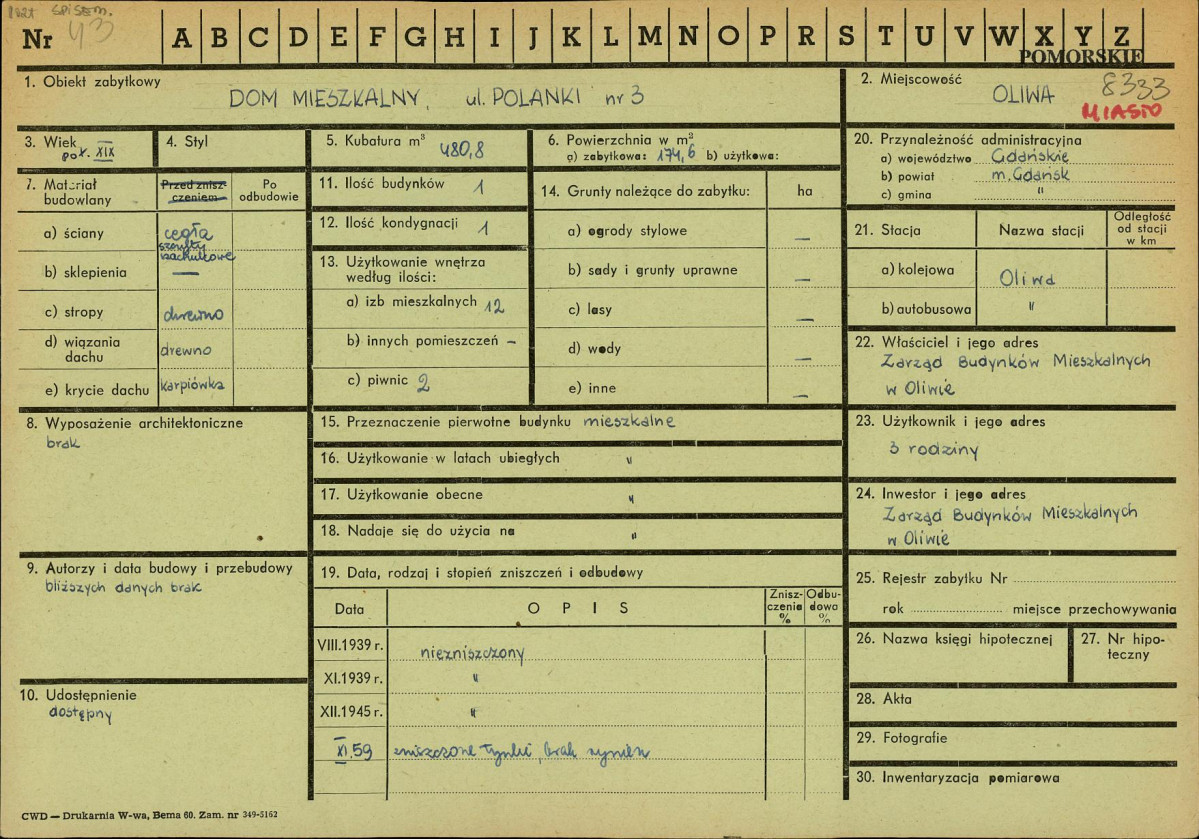 SPISEM.
Nr 43 A B C D E F G H I J K L M N O P R S T U V W X Y Z
POMORSKIE
1. Obiekt zabytkowy
DOM MIESZKALNY, ul. POLANKI nr 3
2. Miejscowość
OLIWA 8333
MIASTO
3. Wiek
poł. XIX
4. Styl
5. Kubatura m³ 480,8
6. Powierzchnia w m²
a) zabytkowa: 174,6 b) użytkowa:
7. Materiał budowlany
Przed zniszczeniem
Po odbudowie
a) ściany cegła
szczyty
zachulcowe
b) sklepienia —
c) stropy drewno
d) wiązania dachu drewno
e) krycie dachu karpiówka
8. Wyposażenie architektoniczne
brak
9. Autorzy i data budowy i przebudowy
bliższych danych brak
10. Udostępnienie
dostępny
11. Ilość budynków 1
12. Ilość kondygnacji 1
13. Użytkowanie wnętrza
według ilości:
a) izb mieszkalnych 12
b) innych pomieszczeń –
c) piwnic 2
14. Grunty należące do zabytku: ha
a) ogrody stylowe —
b) sady i grunty uprawne —
c) lasy —
d) wody —
e) inne —
15. Przeznaczenie pierwotne budynku mieszkalne
16. Użytkowanie w latach ubiegłych "
17. Użytkowanie obecne "
18. Nadaje się do użycia na "
19. Data, rodzaj i stopień zniszczeń i odbudowy
Data OPIS Zniszczenia % Odbudowa %
VIII.1939 r. niezniszczony
XI.1939 r. "
XII.1945 r. "
XI.59 zniszczone tynki, brak rynien
20. Przynależność administracyjna
a) województwo Gdańskie
b) powiat m. Gdańsk
c) gmina "
21. Stacja Nazwa stacji Odległość od stacji w km
a) kolejowa Oliwa
b) autobusowa "
22. Właściciel i jego adres
Zarząd Budynków Mieszkalnych
w Oliwie
23. Użytkownik i jego adres
3 rodziny
24. Inwestor i jego adres
Zarząd Budynków Mieszkalnych
w Oliwie
25. Rejestr zabytku Nr
rok miejsce przechowywania
26. Nazwa księgi hipotecznej
27. Nr hipoteczny
28. Akta
29. Fotografie
30. Inwentaryzacja pomiarowa
CWD — Drukarnia W-wa, Bema 60. Zam. nr 349-5162